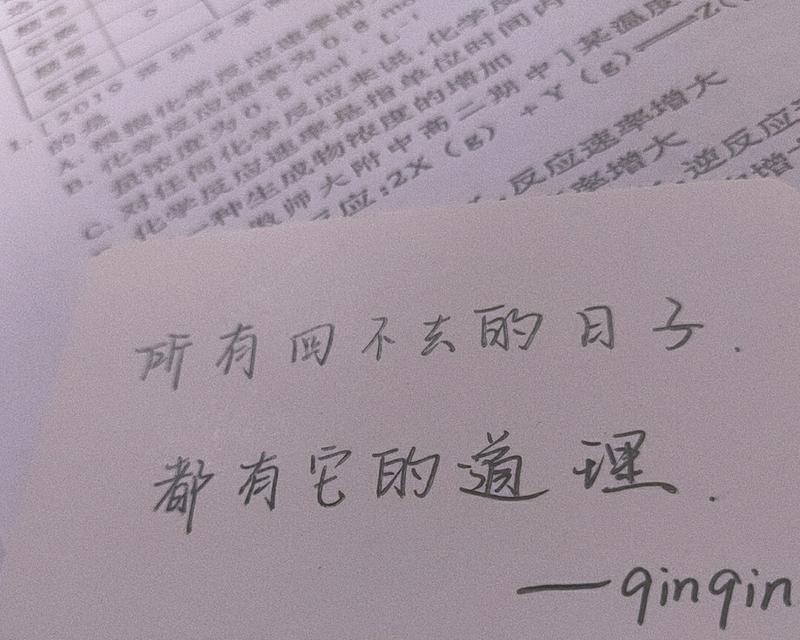 1. [2016
的是
A. 根据化学反应速率的
B. 化学反应速率为0.8 mo
是浓度为0.8 mol·L⁻¹
C. 对任何化学反应来说,化学反
化学反应速率是指单位时间内
一种生成物浓度的增加
师大附中高二期中]某温度
反应:2X(g)+Y(g)⇌Z(
反应速率增大 逆反应
率增大 增
所有回不去的日子.
都有它的道理.
—qinqin